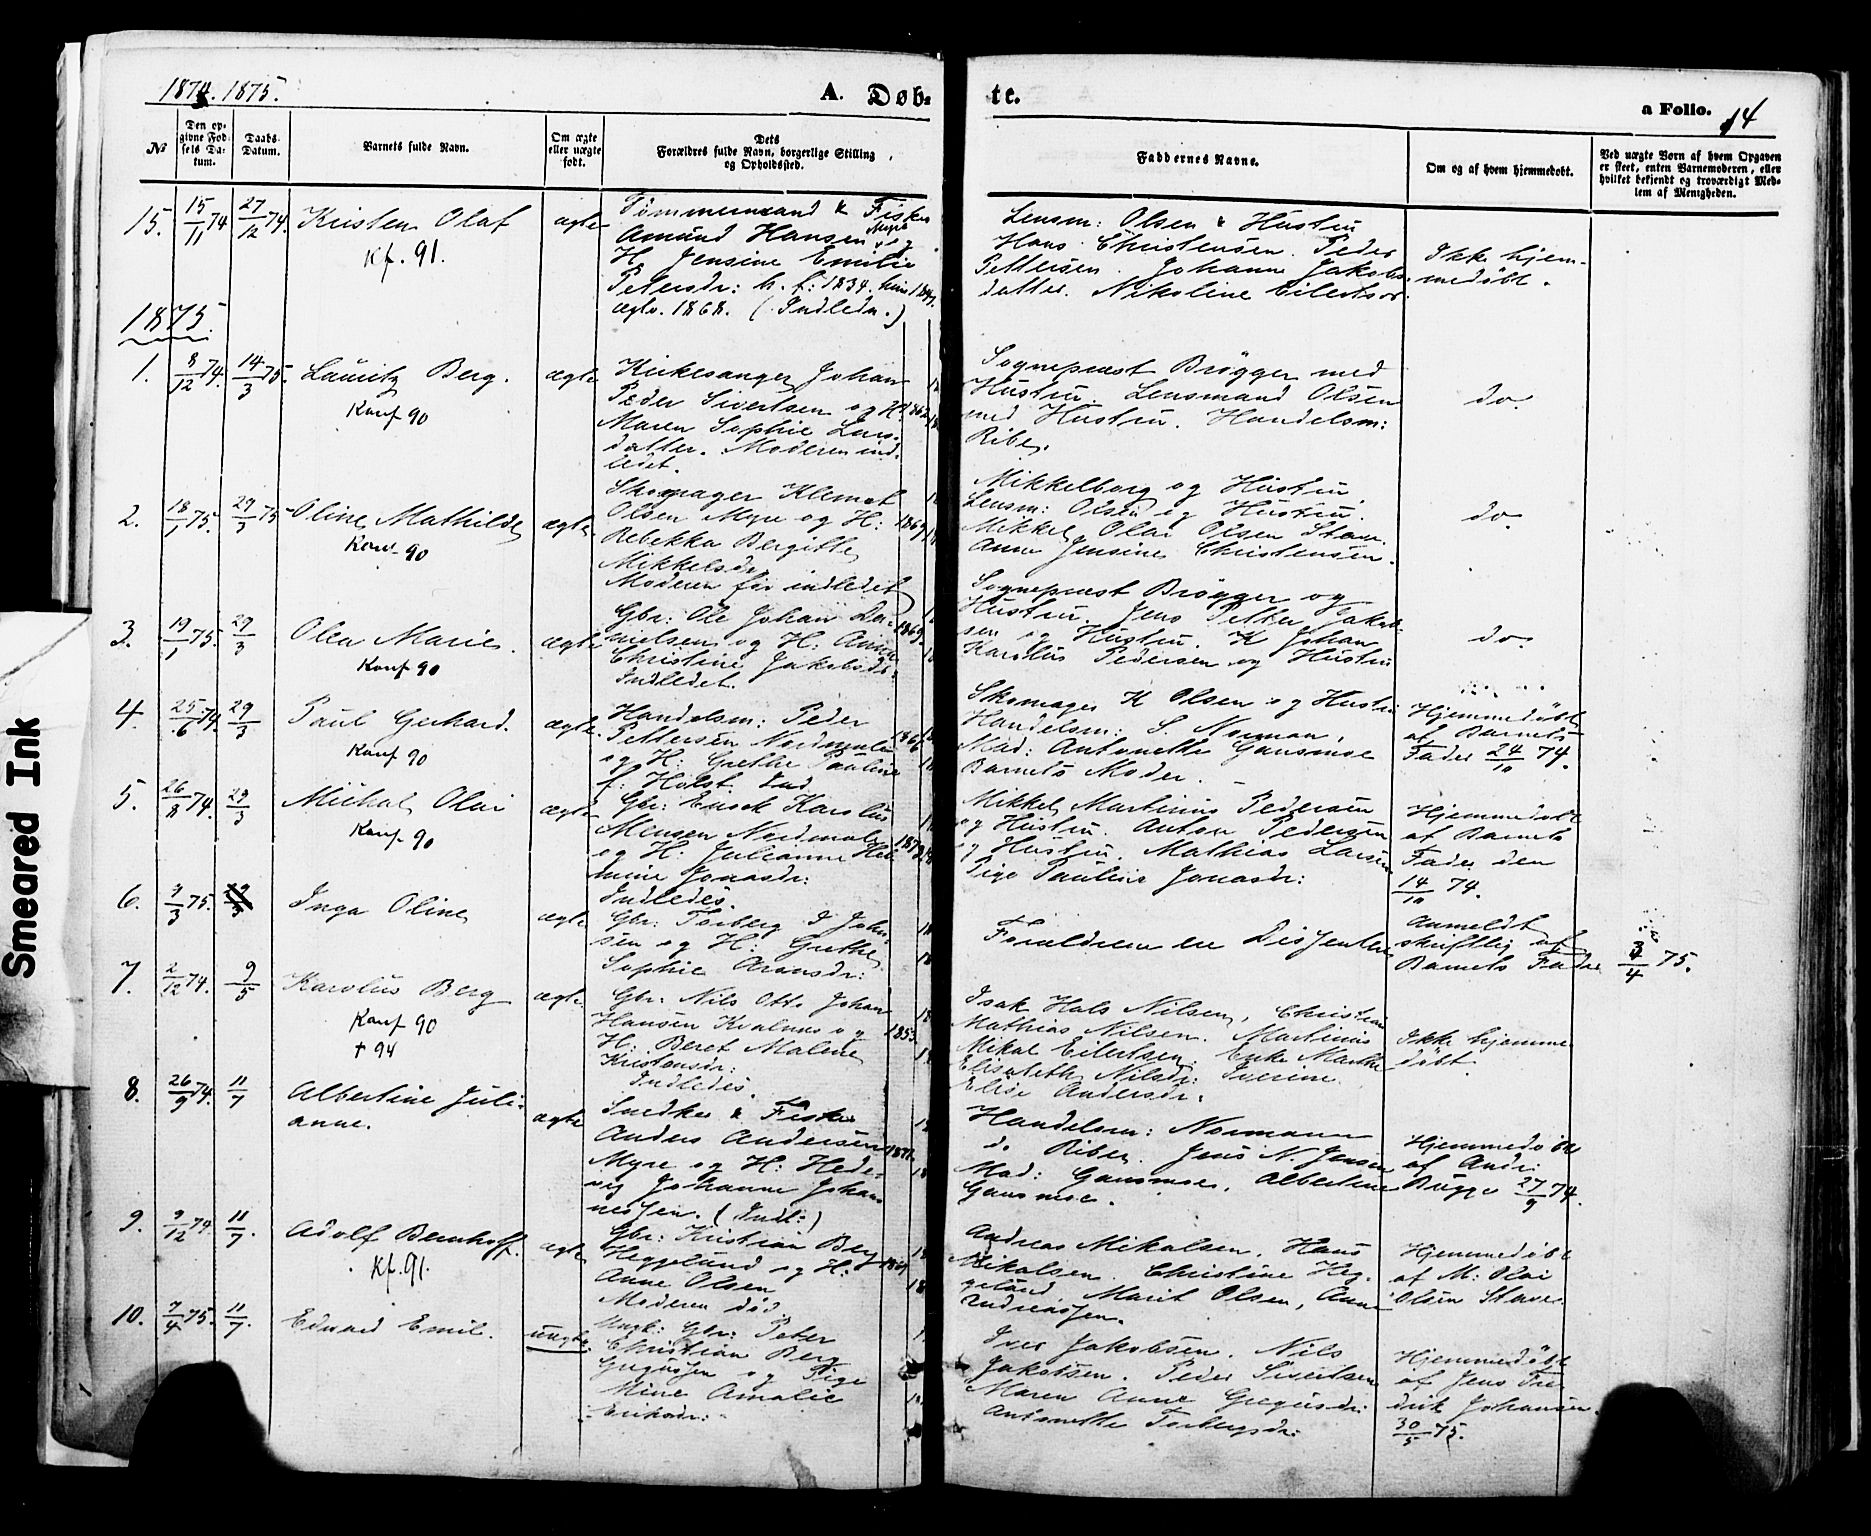 1874. 1875.
A. Døb-
te.
a Folio. 14
№
Den opgivne Fødsels Datum.
Daabs-Datum.
Barnets fulde Navn.
Om ægte eller uægte født.
Dets Forældres fulde Navn, borgerlige Stilling og Opholdssted.
Faddernes Navne.
Om og af hvem hjemmedøbt.
Ved uægte Børn af hvem Opgaven er skeet, enten Barnemoderen, eller hvilket bekjendt og troværdigt Medlem af Menigheden.
15. 15/11 74 27/12 74. Kristen Olaf
Kf. 91.
ægte
Tømmermand & Fisker
Amund Hansen Myre og
H. Jensine Emilie
Petersdr: h. f: 1834. hun 1841.
ægtv. 1868. (Indledn.)
Lensm: Olsen & Hustru
Hans Christensen. Peder
Pettersen. Johanne Jakobs-
datter. Nikoline Eilertsdr.
Ikke hjem-
medøbt.
1875.
1. 8/12 74. 14/3 75. Lauritz Berg.
Konf 90
ægte
Kirkesanger Johan
Peder Sivertsen og H. 1862
Maren Sophie Lars-
datter. Moderen ind-
ledet.
Sognepræst Brøgger med
Hustru. Lensmand Olsen
med Hustru. Handelsm:
Riber.
do.
2. 18/1 75. 29/3 75 Oline Mathilde
Konf 90
ægte
Skomager Klemet
Olsen Myre og H: 1869
Rebekka Bergitte
Mikkelsdr.
Moderen før indledet
Mikkelborg og Hustru.
Lensm: Olsen og Hustru.
Mikkel Olai Olsen Stave.
Anne Jensine Christensen.
do.
3. 19/1 75. 29/3 Olea Marie.
Konf 90
ægte
Gbr: Ole Johan Da-
nielsen og H. Anne 1869
Christine Jakobsdr:
Indledet.
Sognepræst Brøgger og
Hustru. Jens Petter Jakob-
sen og Hustru. K Johan
Karolus Pedersen og Hustru
do.
4. 25/6 74. 29/3 Paul Gerhard.
Konf 90
ægte.
Handelsm: Peder
Pettersen Nordmelen 1866
og H: Grethe Pauline
f. Holst. Ind.
Skomager K Olsen og Hustru
Handelsm: S. Norman.
Mad: Antonette Gausmoe
Barnets Moder.
Hjemmedøbt
af Barnets
Fader 24/10 74.
5. 26/8 74. 29/3 Mikal Olai
Konf 90
ægte
Gbr: Enok Karolus
Mensen Nordmele 1873
og H: Julianne Hel-
mine Jonasdr:
Indledes.
Mikkel Martinius Pedersen
og Hustru. Anton Pedersen
og Hustru. Mathias Larsen
Pige Pauline Jonasdr:
Hjemmedøbt
af Barnets
Fader den
14/10 74.
6. 9/3 75. 29/3 Inga Oline
ægte
Gbr: Torberg J John-
sen og H: Grethe
Sophie Aronsdr:
Forældrene ere Dissentere
Anmeldt
skriftlig af
Barnets Fader
3/4 75.
7. 2/12 74. 9/5 Karolus Berg
Konf 90
† 94
ægte
Gbr: Nils Otto Johan
Hansen Kvalnes og 1853.
H. Beret Malene
Kristensdr:
Indledes.
Isak Hals Nilsen, Christian
Mathias Nilsen. Martinus
Mikal Eilertsen. Enke Marthe
Elisabeth Nilsdr: Iverine
Elise Andersdr:
Ikke hjemme
døbt.
8. 26/9 74. 11/7 Albertine Juli-
anne.
ægte
Snedker & Fisker
Anders Andersen 1871.
Myre og H: Hede-
vig Johanne Johan
nessen. (Indl:)
Handelsm: Normann
do Riber. Jens N. Jensen
Mad: Gausmoe. Albertine
Gausmoe.
Hjemmedøbt
af Andr:
Bugge 27/9 74.
9. 9/12 74. 11/7. Adolf Bernhoff.
Kf. 91.
ægte
Gbr: Kristian Berg
Heggelund og H: 1869
Anne Olsen
Moderen død.
Andreas Mikalsen. Hans
Mikalsen. Christine Heg-
gelund. Marit Olsen, Anne
Andreassen.
Hjemmedøbt
af M: Olai
Olsen Stave.
10. 7/4 75. 11/7. Edvard Emil.
uægte.
Ungk: Gbr: Peter
Christian Berg
Gregussen og Pige
Mine Amalie
Eriksdr:
Iver Jakobsen. Nils
Jakobsen. Peder Sivertsen
Maren Anne Gregusdr:
Antonette Torbergsdr:
Hjemmedøbt
af Jens Fre-
drik Johansen.
30/5 75.
Smeared Ink